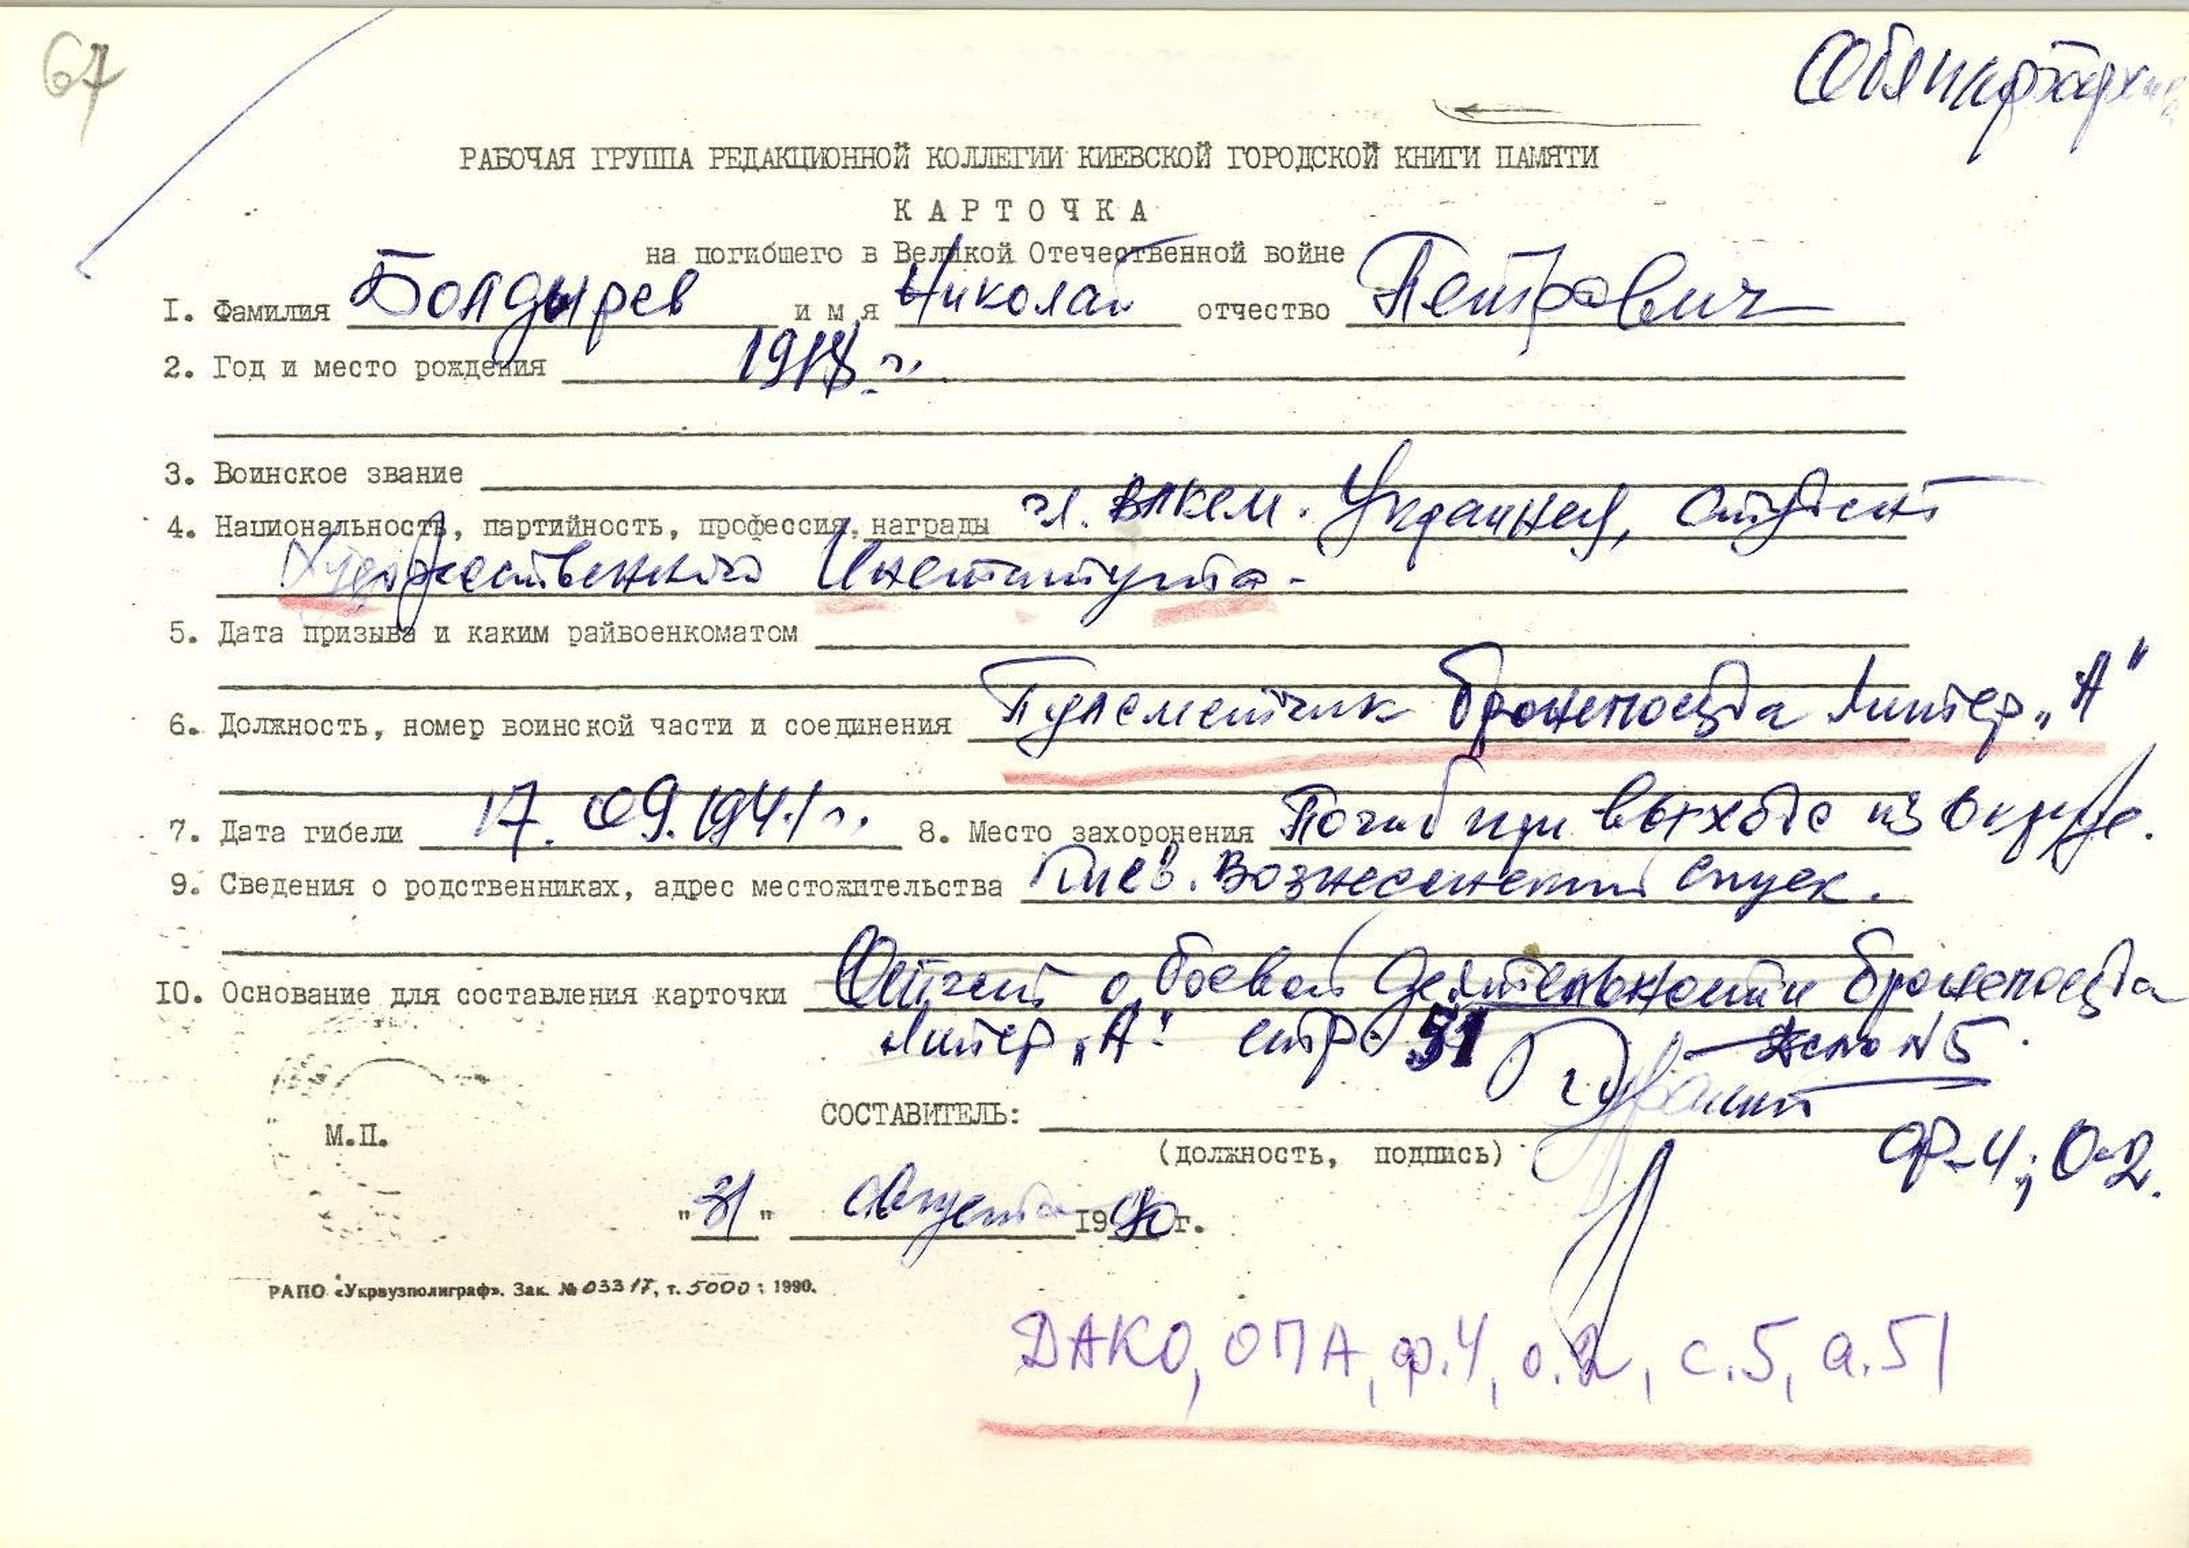 67
РАБОЧАЯ ГРУППА РЕДАКЦИОННОЙ КОЛЛЕГИИ КИЕВСКОЙ ГОРОДСКОЙ КНИГИ ПАМЯТИ
КАРТОЧКА
на погибшего в Великой Отечественной войне
I. Фамилия Болдырев имя Николай отчество Петрович
2. Год и место рождения 1918 г.
3. Воинское звание
4. Национальность, партийность, профессия, награды чл. ВЛКСМ. Украинец, студент
Художественного Института -
5. Дата призыва и каким райвоенкоматом
6. Должность, номер воинской части и соединения Пулеметчик бронепоезда Литер „А"
7. Дата гибели 17.09.1941 г. 8. Место захоронения Погиб при выходе из окруж.
9. Сведения о родственниках, адрес местожительства Киев. Вознесенский спуск.
10. Основание для составления карточки Отчет о боевой деятельности бронепоезда
Литер „А" стр. 51 дело №5.
СОСТАВИТЕЛЬ:
(должность, подпись)
М.П.
ф-4; О-2.
"31" августа 1990г.
РАПО «Укрвузполиграф». Зак. № 03317, т. 5000. 1990.
ДАКО, ОПА, ф.4, о.2, с.5, а.51